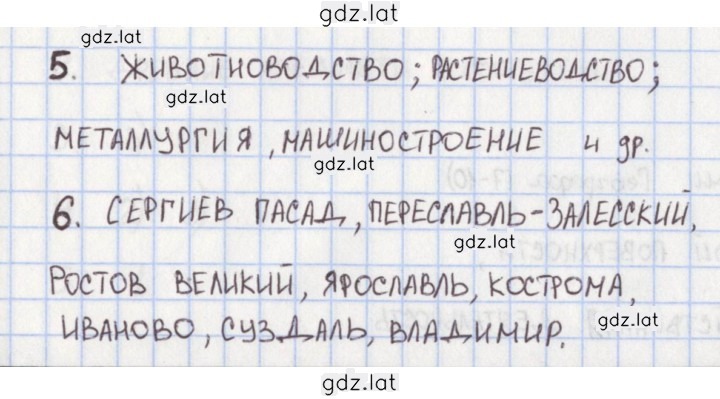 gdz.lat
gdz.lat
5. ЖИВОТНОВОДСТВО; РАСТЕНИЕВОДСТВО;
gdz.lat
МЕТАЛЛУРГИЯ, МАШИНОСТРОЕНИЕ и др.
gdz.lat
6. СЕРГИЕВ ПАСАД, ПЕРЕСЛАВЛЬ-ЗАЛЕССКИЙ,
gdz.lat
РОСТОВ ВЕЛИКИЙ, ЯРОСЛАВЛЬ, КОСТРОМА,
ИВАНОВО, СУЗДАЛЬ, ВЛАДИМИР.
gdz.lat
gdz.lat